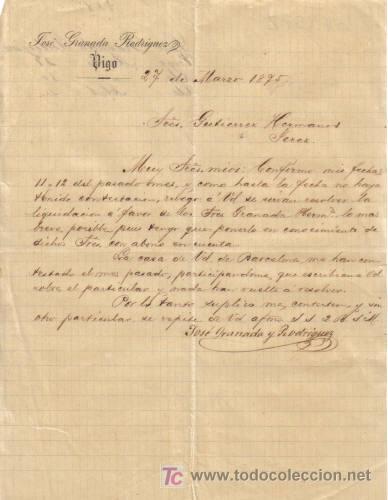 José Granada Rodriguez
Vigo
27 de Marzo 1895
Sres. Gutierrez Hermanos
Jerez
Muy Sres. mios: Confirmo mis fechas
11 y 12 del pasado mes, y como hasta la fecha no haya
tenido contestacion, ruego á Vd se sirvan resolver la
liquidacion á favor de los Sres Granada Herm.s lo mas
breve posible pues tengo que ponerlo en conocimiento de
dichos Sres con abono en cuenta.
La casa de Vd de Barcelona me han con-
testado el mes pasado, participandome, que escribiera á Vd
sobre el particular y nada han vuelto á resolver.
Por lo tanto suplico me contesten, y sin
otro particular se repite de Vd afmo s s
José Granada y Rodriguez
TC
todocoleccion
www.todocoleccion.net